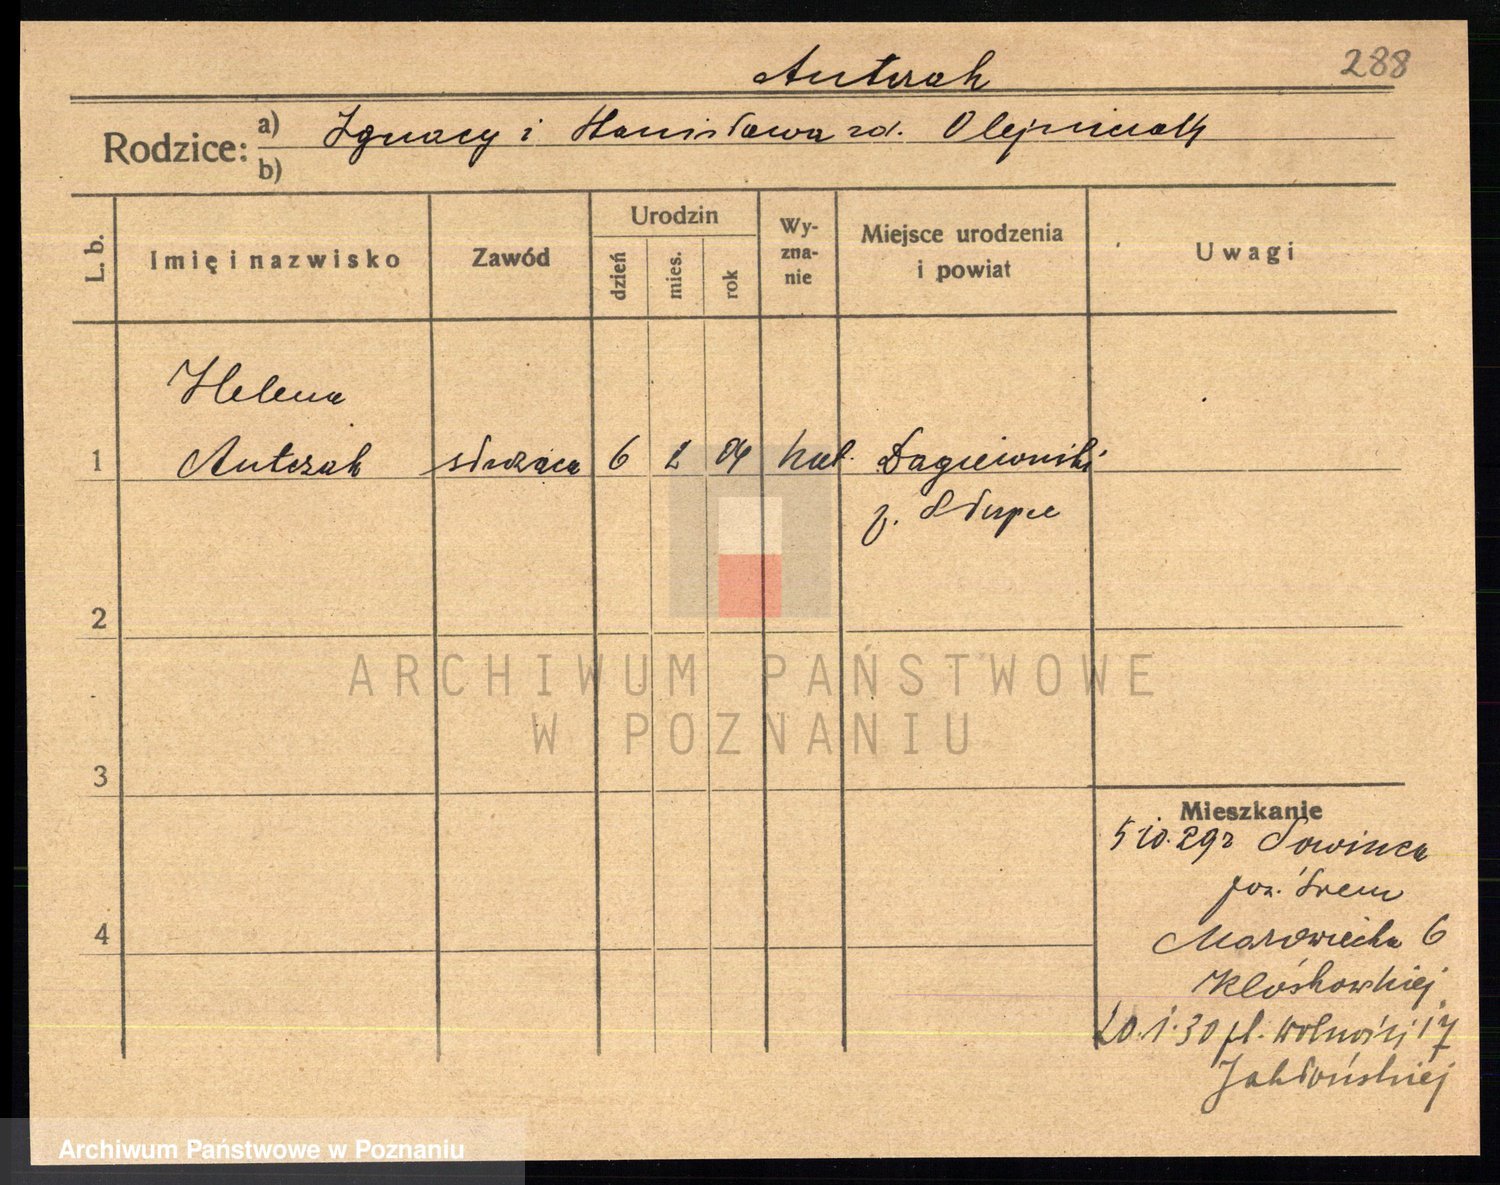 288
Antczak
Rodzice: a) Ignacy i Stanisława zd. Olejniczak
b)
L. b.
Imię i nazwisko
Zawód
Urodzin
dzień
mies.
rok
Wy-
zna-
nie
Miejsce urodzenia
i powiat
Uwagi
Helena
1 Antczak służąca 6 2 04 kat.
p. Słupca
2
3
4
Mieszkanie
5 10. 29r Sowińca
pow. Śrem
Mazowiecka 6
Kłóskowskiej
20.1.30 pl. Wolności 17
Jabłońskiej
ARCHIWUM PAŃSTWOWE
W POZNANIU
Archiwum Państwowe w Poznaniu